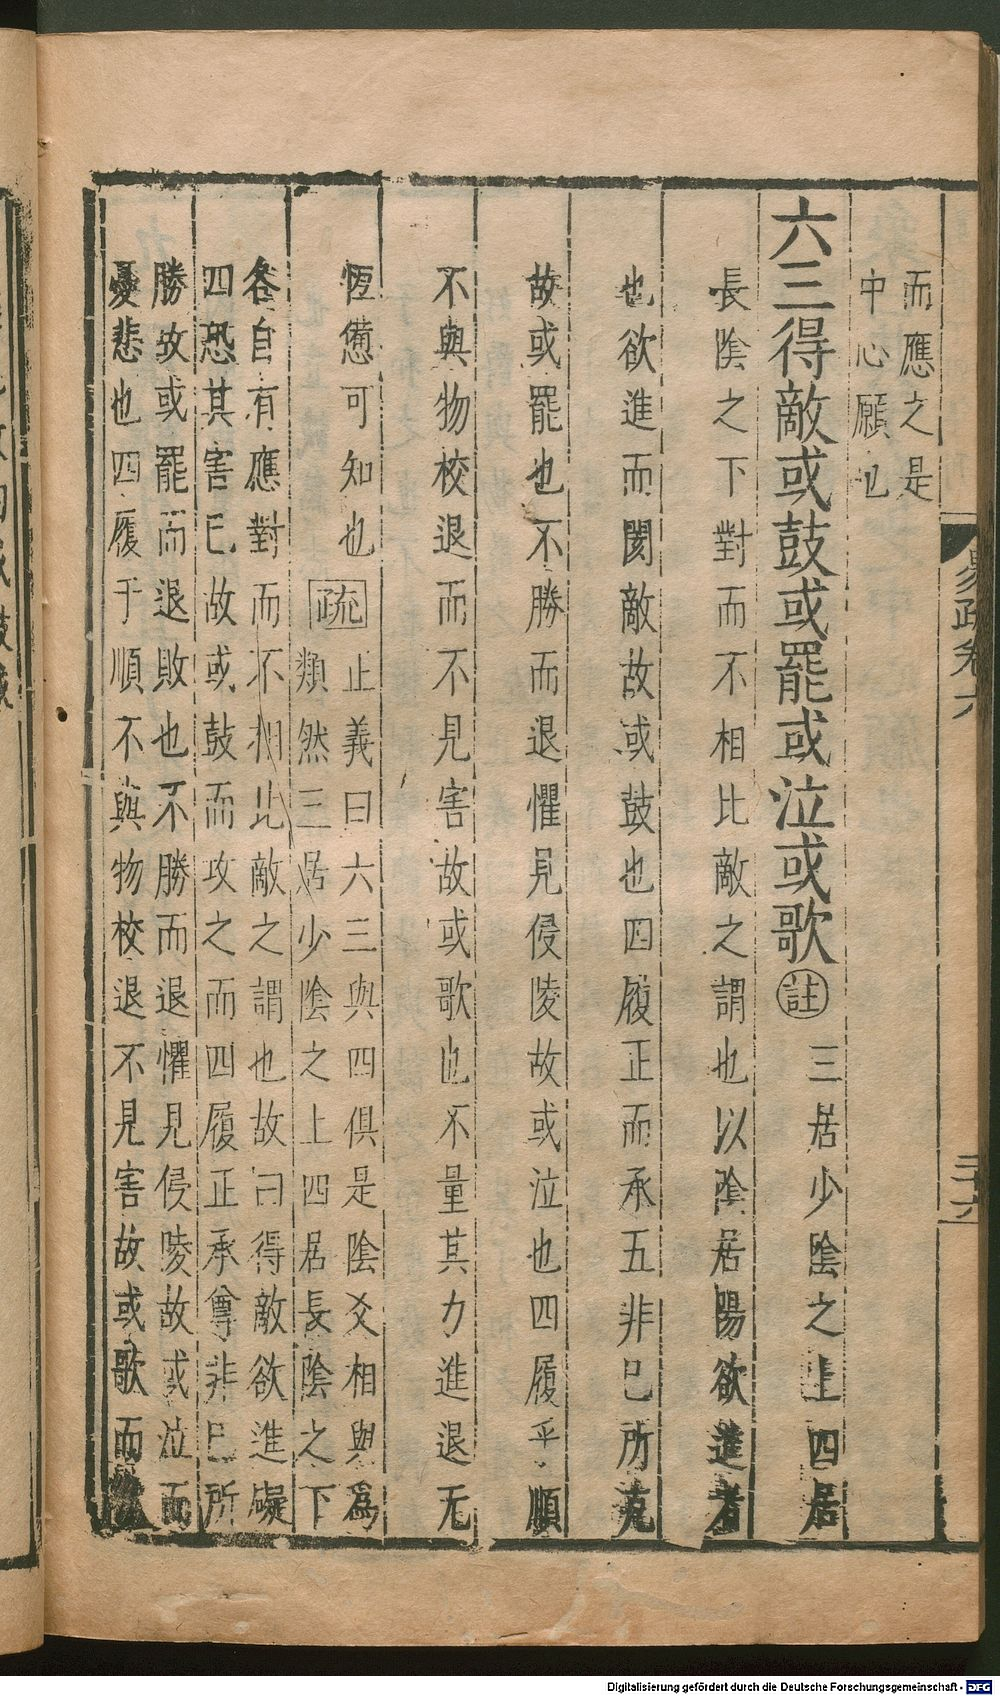 易疏卷六
二十六
而應之是
中心願也
六三得敵或鼓或罷或泣或歌註三居少陰之上四居
長陰之下對而不相比敵之謂也以陰居陽欲進者
也欲進而閡敵故或鼓也四履正而承五非已所克
故或罷也不勝而退懼見侵陵故或泣也四履乎順
不與物校退而不見害故或歌也不量其力進退无
恆憊可知也疏
正義曰六三與四俱是陰爻相與爲
類然三居少陰之上四居長陰之下
各自有應對而不相比敵之謂也故曰得敵欲進礙
四恐其害已故或鼓而攻之而四履正承尊非已所
勝故或罷而退敗也不勝而退懼見侵陵故或泣而
憂悲也四履于順不與物校退不見害故或歌而
Digitalisierung gefördert durch die Deutsche Forschungsgemeinschaft - DFG